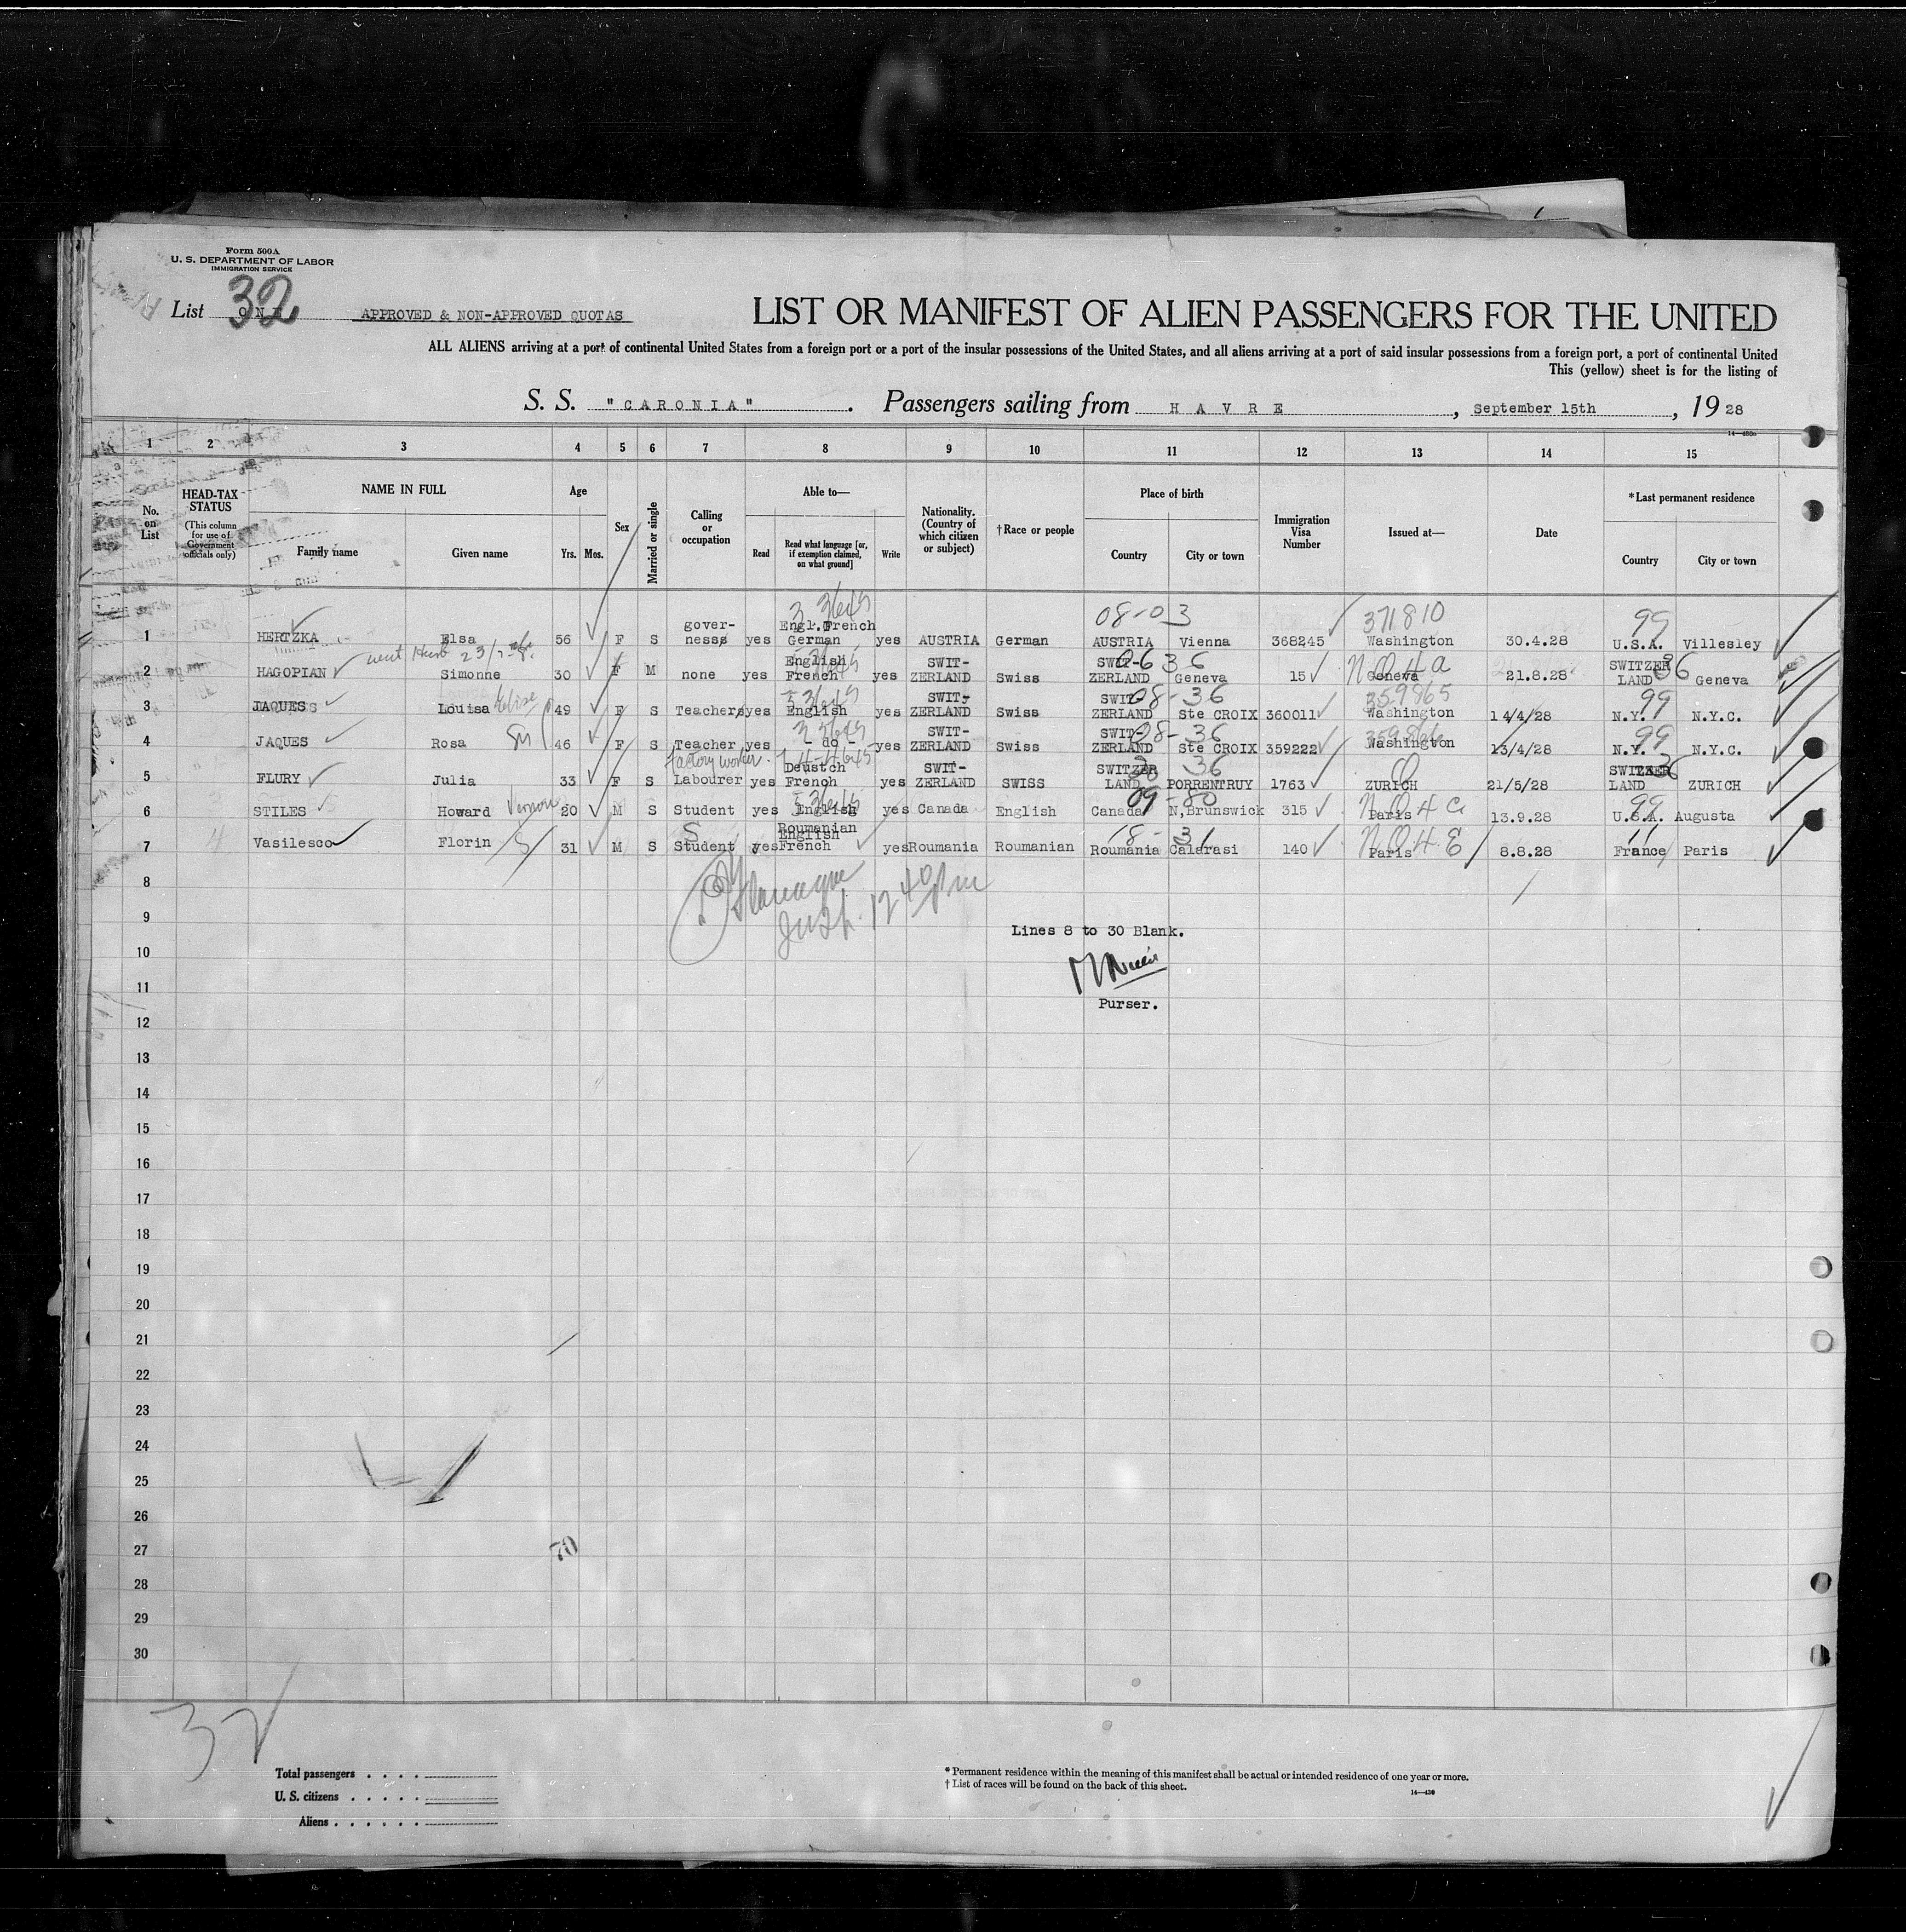 Form 500A
U. S. DEPARTMENT OF LABOR
IMMIGRATION SERVICE
List 32 APPROVED & NON-APPROVED QUOTAS LIST OR MANIFEST OF ALIEN PASSENGERS FOR THE UNITED
ALL ALIENS arriving at a port of continental United States from a foreign port or a port of the insular possessions of the United States, and all aliens arriving at a port of said insular possessions from a foreign port, a port of continental United
This (yellow) sheet is for the listing of
S. S. "CARONIA". Passengers sailing from HAVRE, September 15th, 1928
1 2 3 4 5 6 7 8 9 10 11 12 13 14 15
No. on List
HEAD-TAX STATUS (This column for use of Government officials only)
NAME IN FULL Family name Given name
Age Yrs. Mos.
Sex
Married or single
Calling or occupation
Able to— Read Read what language [or, if exemption claimed, on what ground] Write
Nationality. (Country of which citizen or subject)
†Race or people
Place of birth Country City or town
Immigration Visa Number
Issued at—
Date
*Last permanent residence Country City or town
08-03 371810 99
1 HERTZKA Elsa 56 F S governess yes Engl. French German yes AUSTRIA German AUSTRIA Vienna 368245 Washington 30.4.28 U.S.A. Villesley
2 HAGOPIAN Simonne 30 F M none yes English French yes SWITZERLAND Swiss SWITZERLAND Geneva 15 Geneva 21.8.28 SWITZERLAND Geneva
08-36 359865 99
3 JAQUES Louisa Elise 49 F S Teacher yes English yes SWITZERLAND Swiss SWITZERLAND Ste CROIX 360011 Washington 14/4/28 N.Y. N.Y.C.
08-36 359866 99
4 JAQUES Rosa 46 F S Teacher yes - do - yes SWITZERLAND Swiss SWITZERLAND Ste CROIX 359222 Washington 13/4/28 N.Y. N.Y.C.
factory worker
5 FLURY Julia 33 F S Labourer yes Deustch French yes SWITZERLAND SWISS SWITZERLAND PORRENTRUY 1763 ZURICH 21/5/28 SWITZERLAND ZURICH
09-80 99
6 STILES Howard Vernon 20 M S Student yes English yes Canada English Canada N,Brunswick 315 Paris 13.9.28 U.S.A. Augusta
18-31 11
7 Vasilesco Florin 31 M S Student yes Roumanian English French yes Roumania Roumanian Roumania Calarasi 140 Paris 8.8.28 France Paris
8
9
Lines 8 to 30 Blank.
10
11
Purser.
12
13
14
15
16
17
18
19
20
21
22
23
24
25
26
27
70
28
29
30
32
Total passengers
U. S. citizens
Aliens
* Permanent residence within the meaning of this manifest shall be actual or intended residence of one year or more.
† List of races will be found on the back of this sheet.